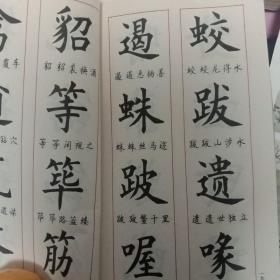 蛟
蛟 蛟龙得水
跋
跋 跋山涉水
遗
遗 遗世独立
喙
遏
遏 遏恶扬善
蛛
蛛 蛛丝马迹
跛
跛 跛鳖千里
喔
貂
貂 貂裘换酒
等
等 等闲视之
筚
筚 筚路蓝缕
筋
覆车